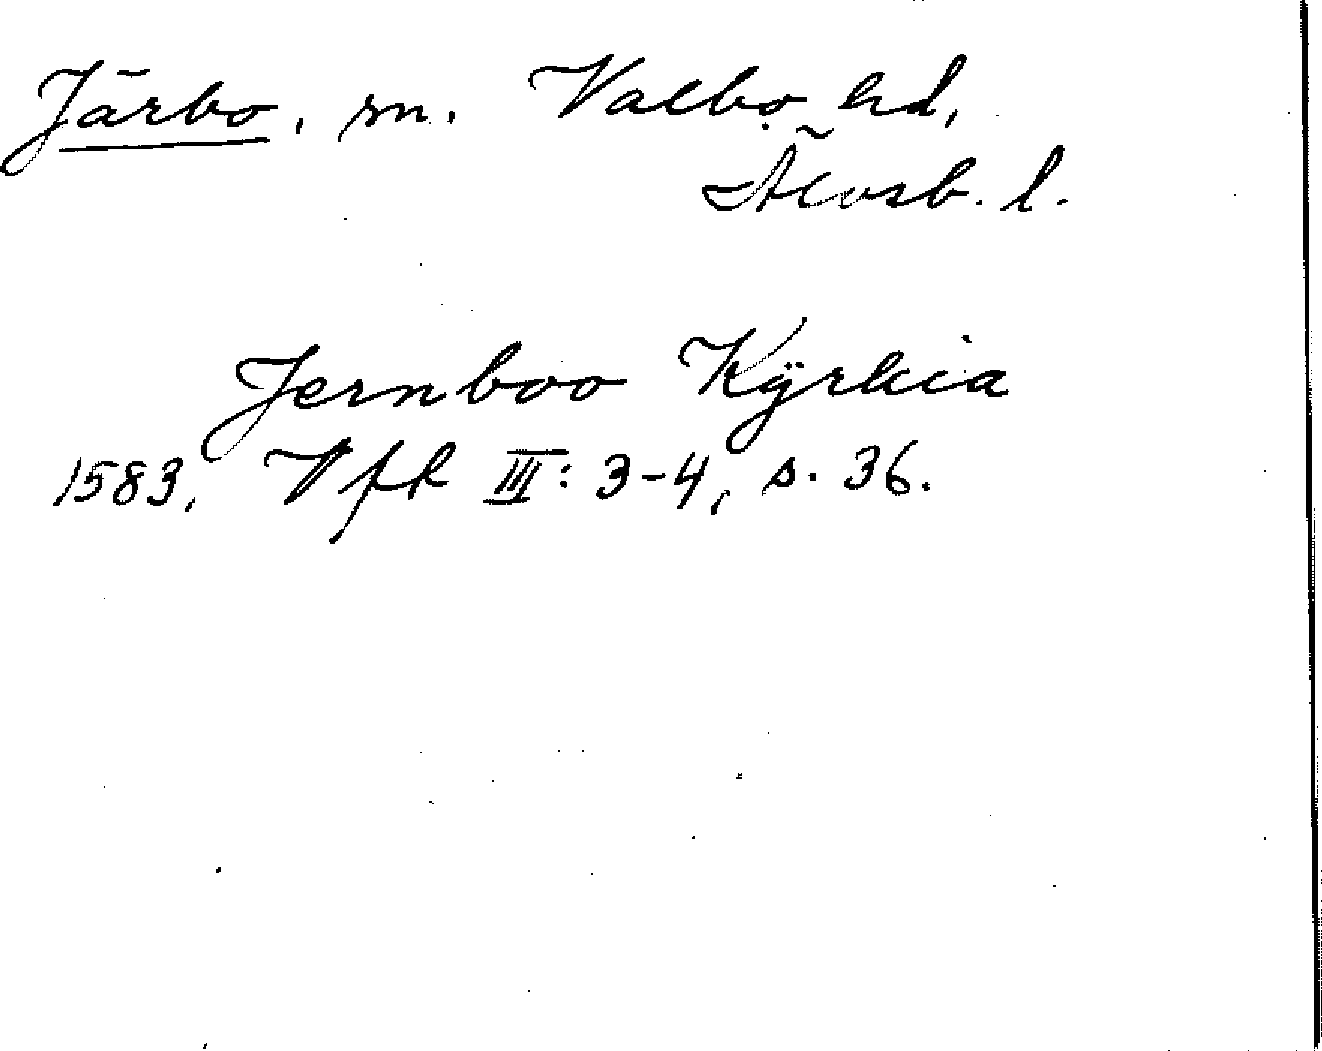 Järbo, sn. Valbo hd,
Älvsb. l.
Jernboo Kÿrkia
1583, Vfk III: 3-4, s. 36.